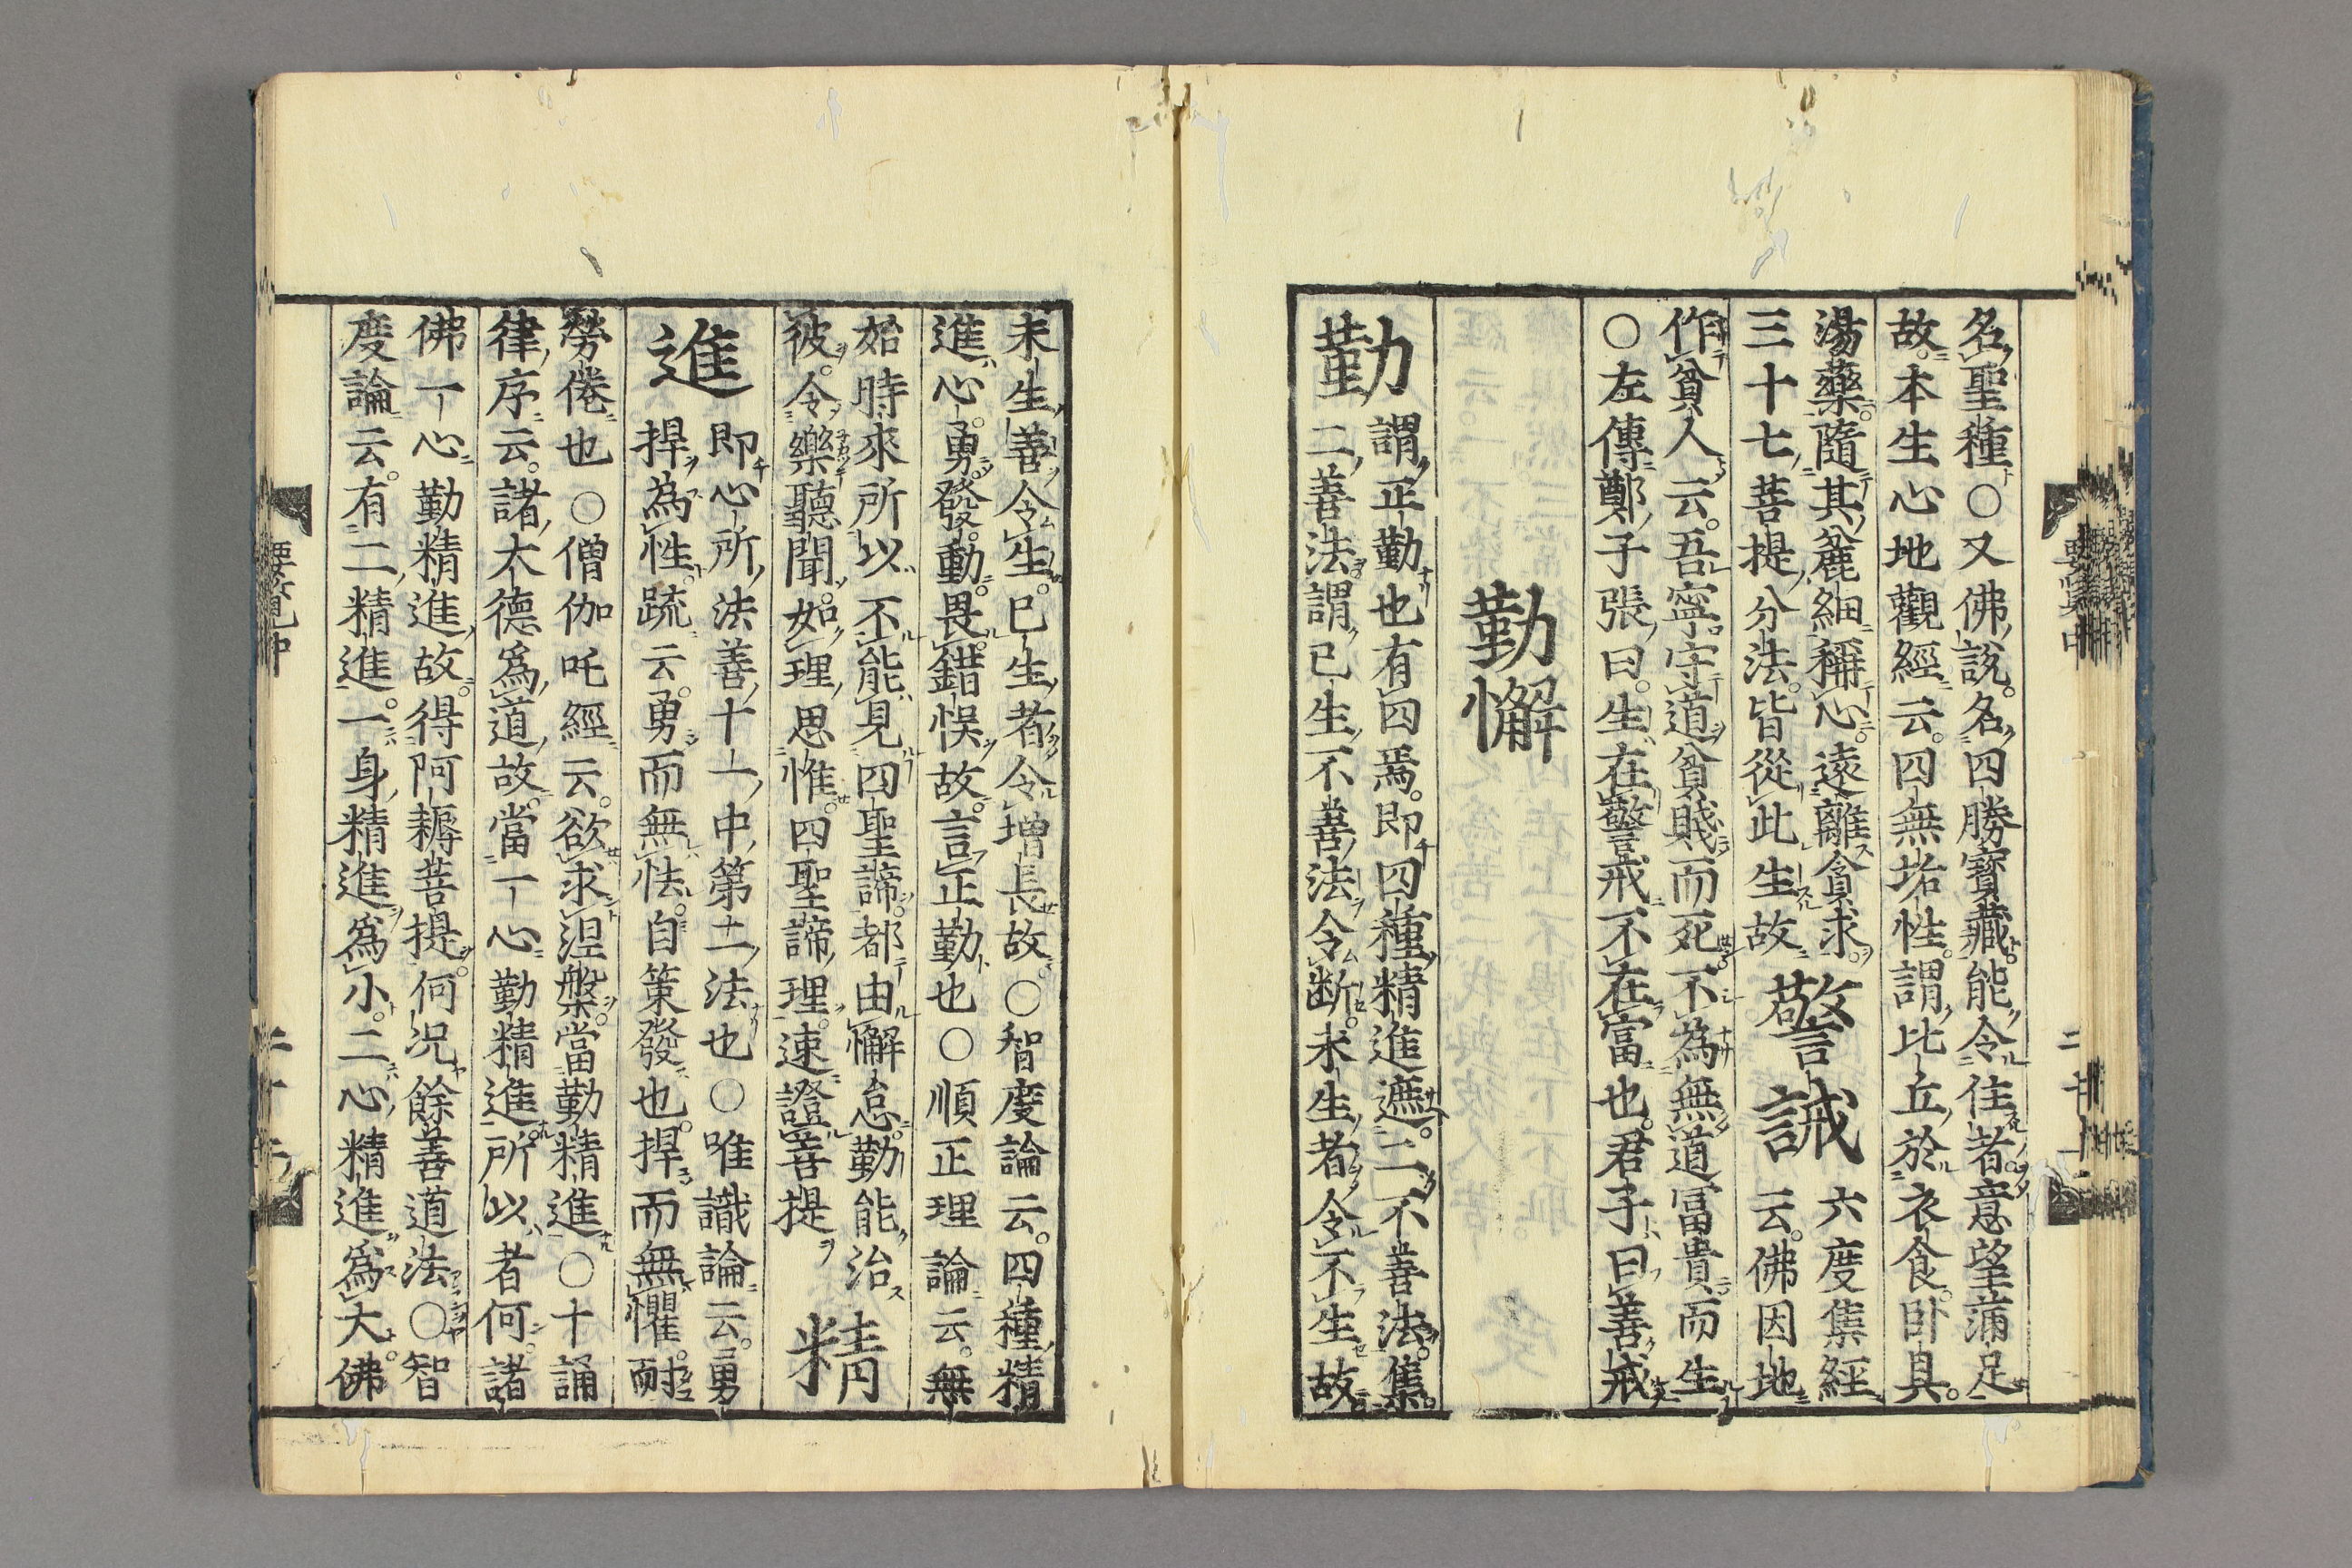 名聖種○又佛說名四勝寶藏能令住者意望蒲足
故本生心地觀經云四無垢性謂比丘於衣食臥具
湯藥隨其麁細稱心遠離貪求
三十七菩提分法皆從此生故
警誡
六度集經
云佛因地
作貧人云吾寧守道貧賤而死不為無道冨貴而生
○左傳鄭子張曰生在警戒不在富也君子曰善戒
勤懈
勤
謂正勤也有四焉即四種精進遮二不善法集
二善法謂已生不善法令断未生者令不生故
未生善令生已生者令增長故○智度論云四種精
進心勇發動畏錯悞故言正勤也○順正理論云無
始時來所以不能見四聖諦都由懈怠勤能治
彼令樂聽聞如理思惟四聖諦理速證菩提
精
進
即心所法善十一中第十一法也○唯識論云勇
捍為性疏云勇而無怯自策發也捍而無懼耐
勞倦也○僧伽吒經云欲求涅槃當勤精進○十誦
律序云諸大德為道故當一心勤精進所以者何諸
佛一心勤精進故得阿耨菩提何况餘善道法○智
度論云有二精進一身精進為小二心精進為大佛
要覧中